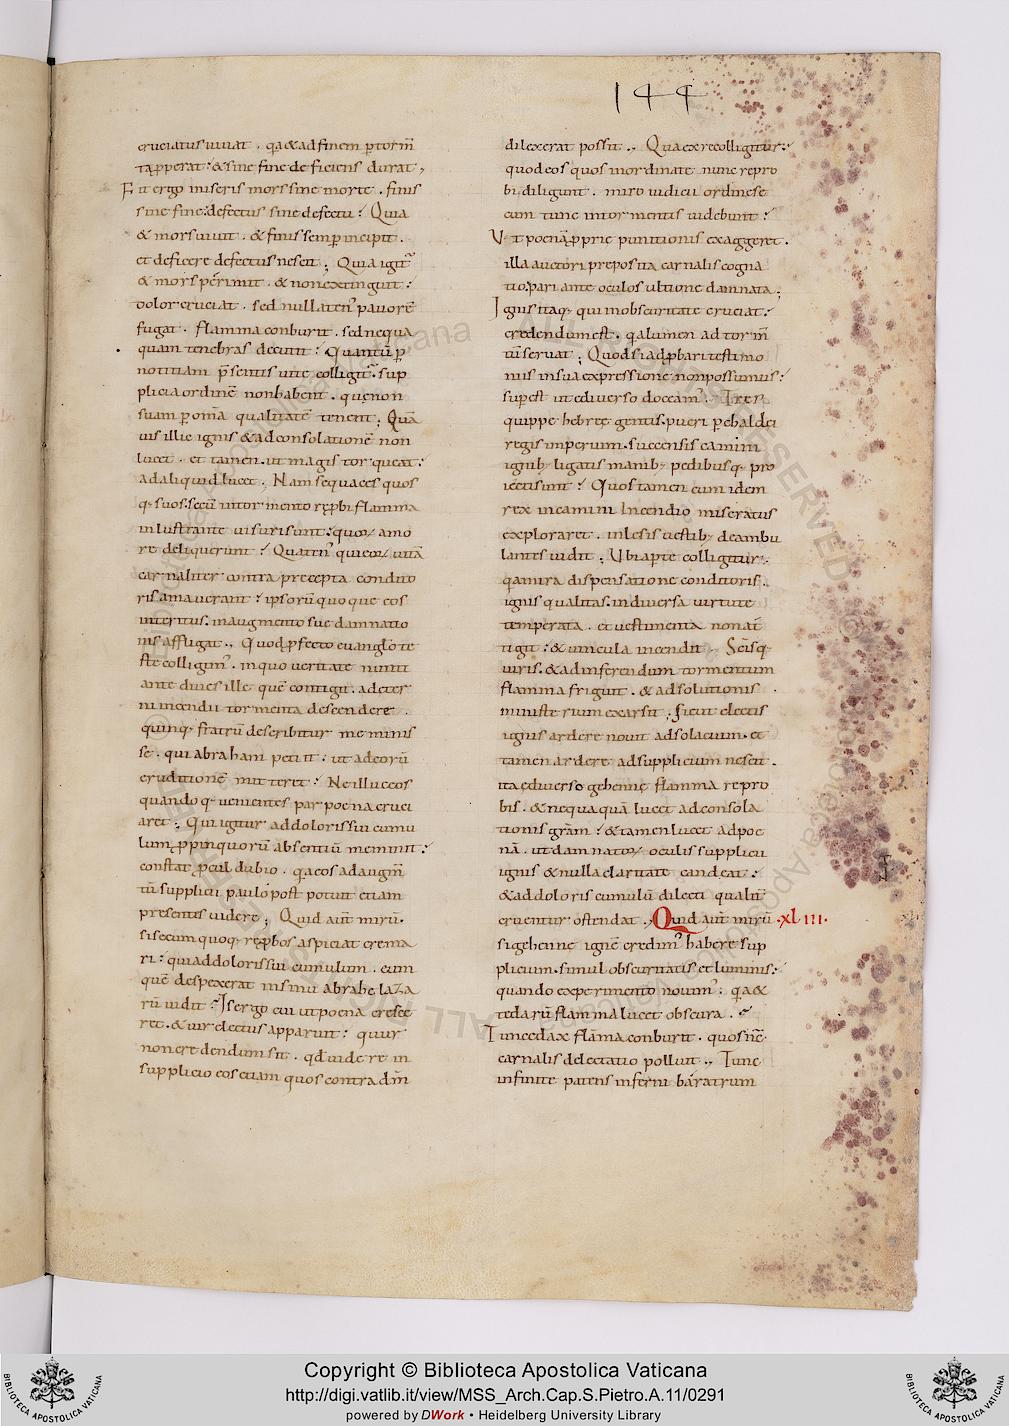 144
cruciatus vivat . qa & ad finem ꝑ torm̄
ta ꝓperat : & sine fine deficiens durat ,
Fit ergo miseris mors sine morte . finis
sine fine . defectus sine defectu ; Quia
& mors vivit . & finis semꝑ incipit .
et deficere defectus nescit ; Quia igit᷒
& mors perimit . & non extinguit :
dolor cruciat . sed nullaten᷒ pavorē
fugat . flamma conburit . sed nequa
quam tenebras decutit : Quantū ꝑ
notitiam p̄sentis vitę colligit᷒ . sup
plicia ordinē non habent . quę non
suam ꝑ om̄a qualitatē tenent ; Quā
vis illic ignis & ad consolationē non
lucet . et tamen . ut magis torqueat :
ad aliquid lucet ; Nam sequaces quos
q; suos . secū in tormento reꝓbi flamma
inlustrante visuri sunt : quoꝝ amo
re deliquerunt ; Quaten᷒ qui eoꝝ vitā
carnaliter contra precepta condito
ris amaverant : ipsorū quoque eos
interitus . in augmento sue damnatio
nis affligat ., Quod ꝓfecto evanglo te
ste colligim᷒ . in quo veritate nunti
ante dives ille quē contigit . ad eter
ni incendii tormenta descendere .
quinq; fratrū describitur meminis
se . qui abraham petiit : ut ad eorū
eruditionē mitteret : Ne illuc eos
quandoq; venientes par poena cruci
aret ; Qui igitur ad doloris sui cumu
lum . ꝓpinquorū absentiū meminit :
constat ꝓcul dubio . qa eos ad augm̄
tū supplicii paulo post potuit etiam
presentes videre ; Quid aut̄ mirū .
si secum quoq; reꝓbos aspiciat crema
ri : qui ad doloris sui cumulum . eum
quē despexerat in sinu abrahę laza
rū vidit ; Is ergo cui ut poena cresce
ret . & vir electus apparuit : quur
non credendum sit . qd̄ videre in
supplicio eos etiam quos contra dm̄
dilexerat possit ., Qua ex re colligitur :
quod eos quos inordinate nunc repro
bi diligunt . miro iudicii ordine se
cum tunc in tormentis videbunt :
Vt poenā ꝓprię punitionis exaggeret .
illa auctori preposita carnalis cogna
tio . pari ante oculos ultione damnata ;
Ignis itaq; qui in obscuritate cruciat :
credendum est . qa lumen ad torm̄
tū servat ; Quod si ad ꝓbari testimo
niis in sua expressione non possumus :
suꝑest ut e diverso doceam᷒ ; Tres
quippe hebreę gentis . pueri ꝑ chaldei
regis imperium . succensis camini
ignib; ligatis manib; pedibusq; pro
iecti sunt : Quos tamen cum idem
rex in camini incendio miseratus
exploraret . inlesis vestib; deambu
lantes vidit ; Ubi apte colligitur :
qa mira dispensatione conditoris .
ignis qualitas . in diversa virtute
temperata . et vestimenta non at
tigit : & vincula incendit ., Scīsq;
viris . & ad inferendum tormentum
flamma friguit . & ad solutionis
ministerium exarsit ; Sicut electis
ignis ardere novit ad solacium . et
tamen ardere ad supplicium nescit .
ita e diverso gehennę flamma repro
bis . & nequaquā lucet ad consola
tionis gr̄am : & tamen lucet ad poe
nā . ut damnatoꝝ oculis supplicii
ignis & nulla claritate candeat :
& ad doloris cumulū dilecti qualit̄
crucientur ostendat ., Quid aut̄ mirū .xliii.
si gehennę ignē credim᷒ habere sup
plicium . simul obscuritatis et luminis :
quando experimento novim᷒ : qa &
tedarū flamma lucet obscura .
Tunc edax flāma conburit . quos nc̄
carnalis delectatio polluit ., Tunc
infinite patens inferni baratrum
Copyright © Biblioteca Apostolica Vaticana
http://digi.vatlib.it/view/MSS_Arch.Cap.S.Pietro.A.11/0291
powered by DWork • Heidelberg University Library
BIBLIOTECA APOSTOLICA VATICANA
BIBLIOTECA APOSTOLICA VATICANA